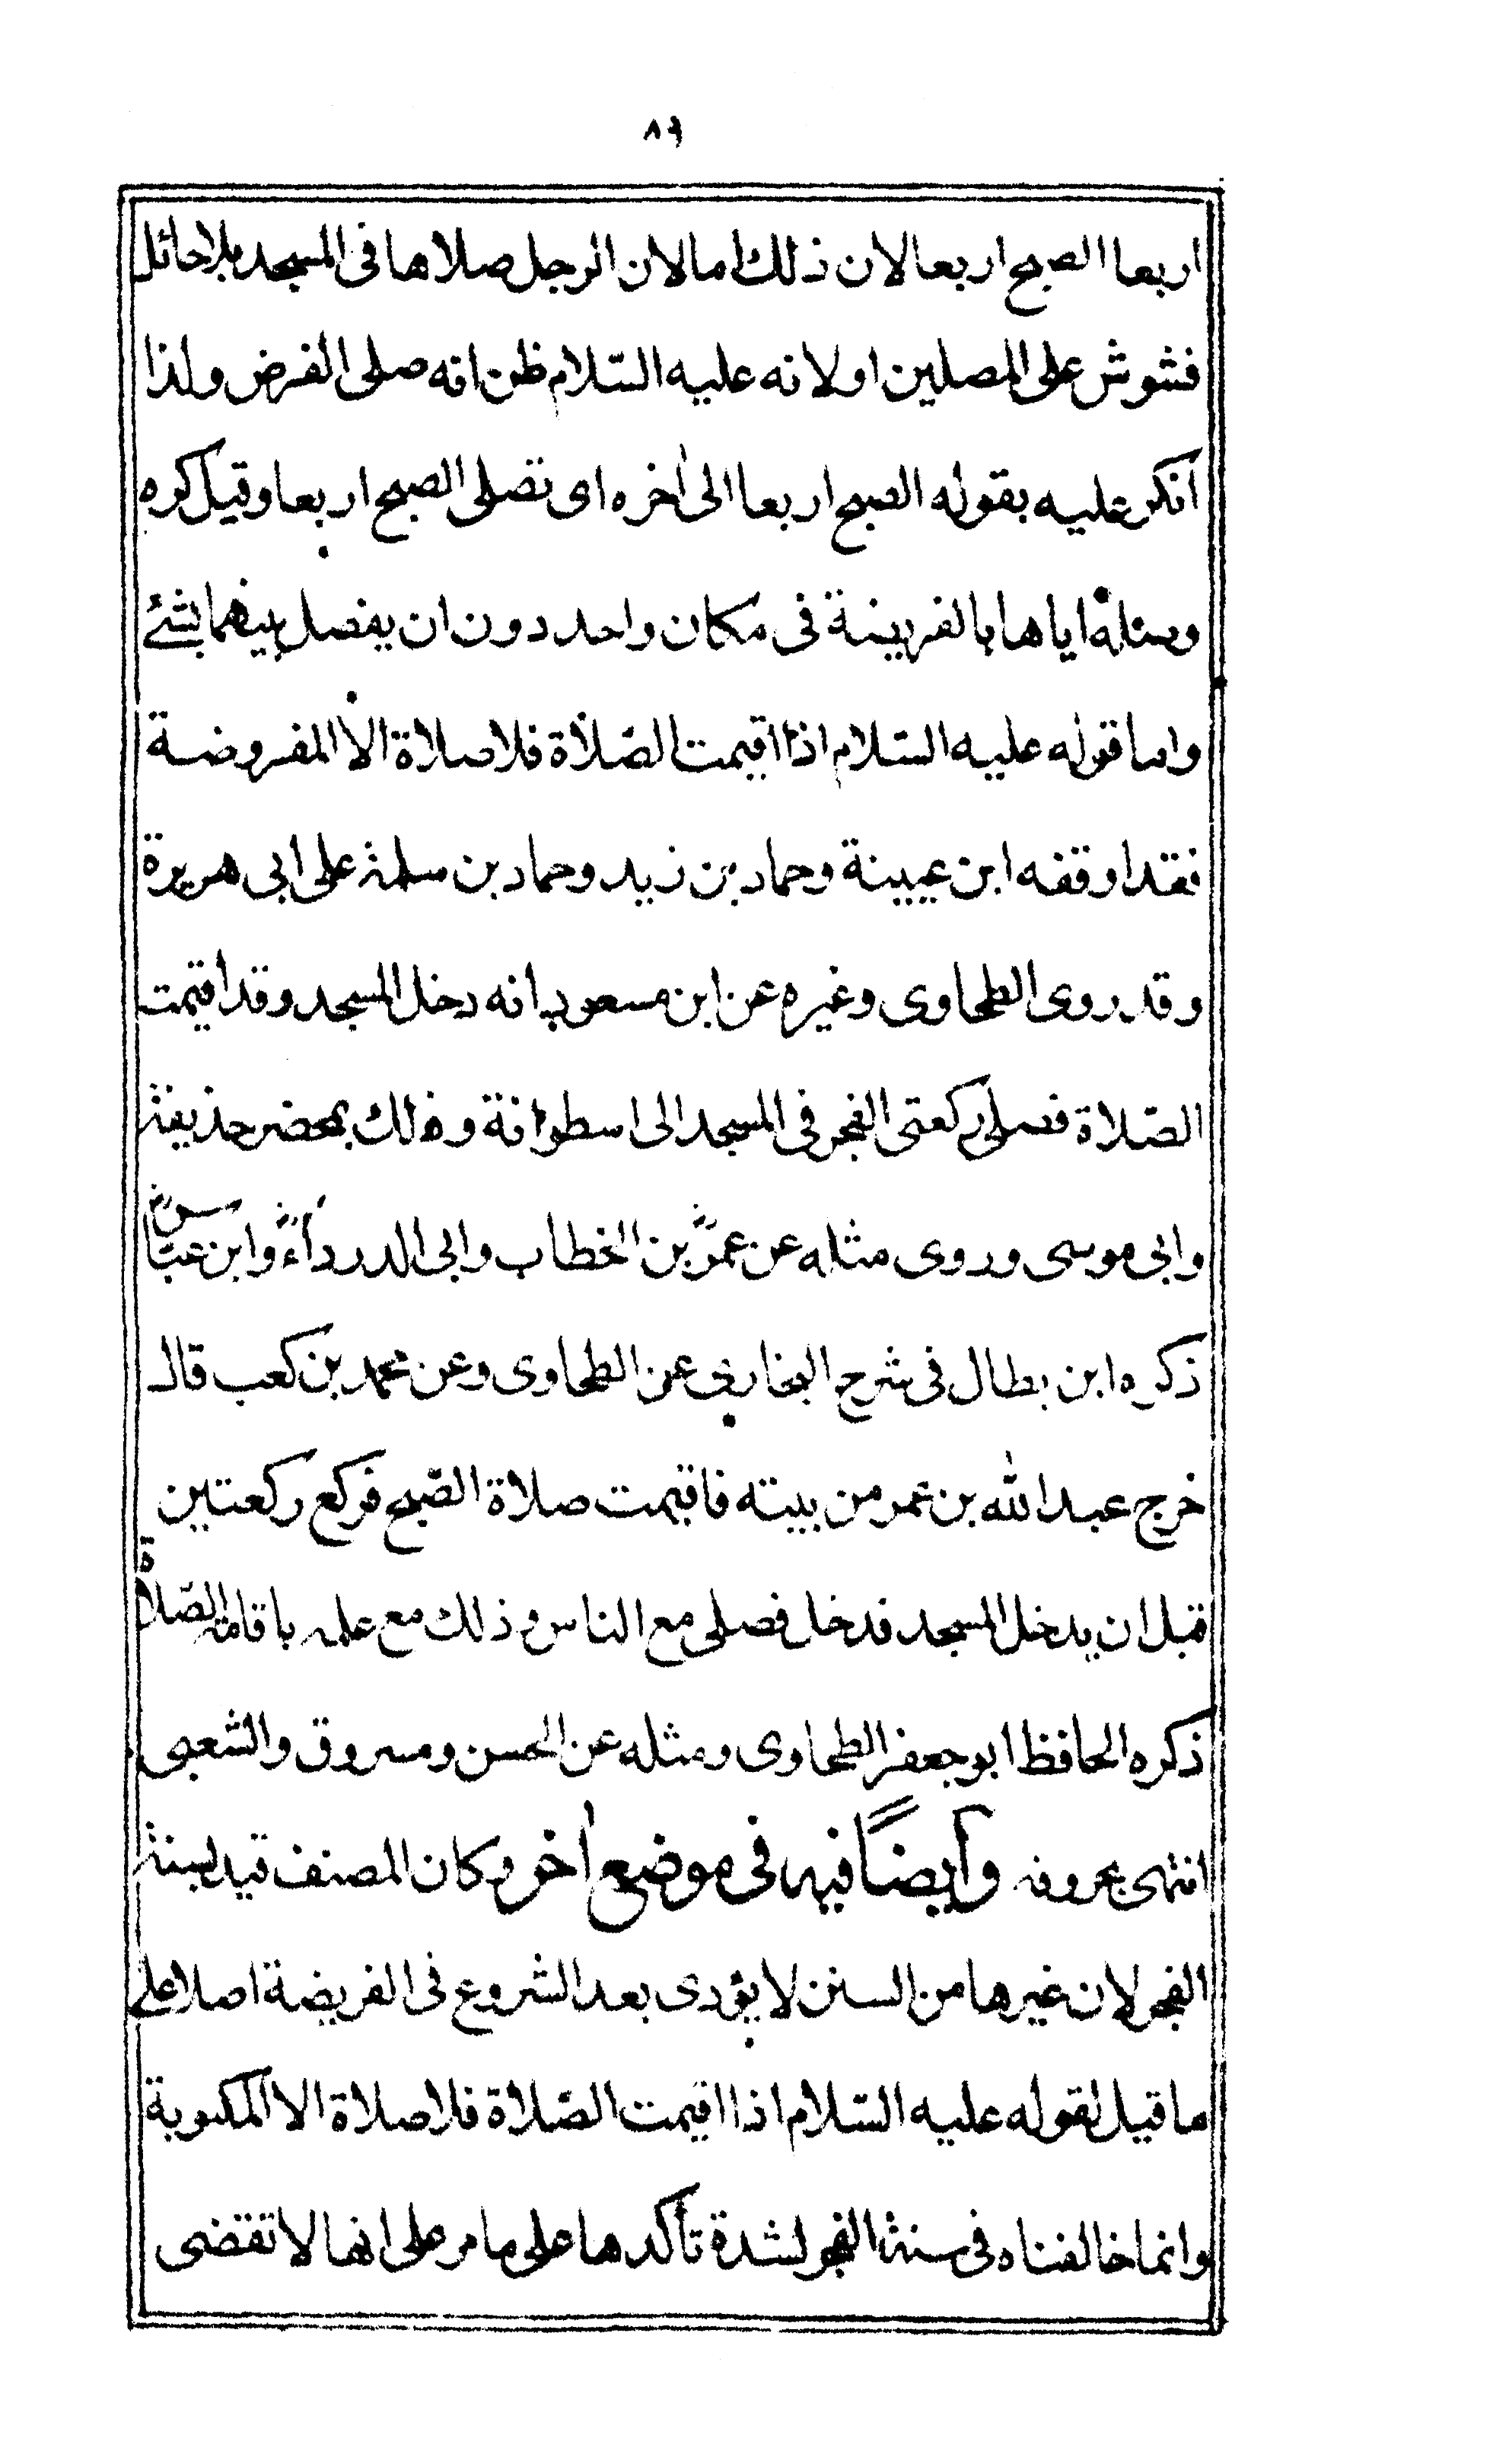 ٨٦
اربعا الصبح اربعا لان ذلك اما لان الرجل صلاها فى المسجد بلا حائل
فشوش على المصلين او لانه عليه السّلام ظن انه صلى الفرض ولذا
انكر عليه بقوله الصبح اربعا الى اٰخره اى تصلى الصبح اربعا وقيل كره
وصله اياها بالفريضة فى مكان واحد دون ان يفصل بينهما بشئ
واما قوله عليه السّلام اذا اقيمت الصّلاة فلا صلاة الا المفروضة
فقد اوقفه ابن عيينة وحماد بن زيد وحماد بن سلمة على ابى هريرة
وقد روى الطحاوى وغيره عن ابن مسعود انه دخل المسجد وقد اقيمت
الصّلاة فصلى ركعتى الفجر فى المسجد الى اسطوانة وذلك بمحضر حذيفة
وابى موسى وروى مثله عن عمر بن الخطاب وابى الدرداء وابن عباس
ذكره ابن بطال فى شرح البخارى عن الطحاوى وعن محمد بن كعب قال
خرج عبد الله بن عمر من بيته فاقيمت صلاة الصّبح فركع ركعتين
قبل ان يدخل المسجد فدخل فصلى مع الناس وذلك مع علمه باقامة الصّلاة
ذكره الحافظ ابو جعفر الطحاوى ومثله عن الحسن ومسروق والشعبى
انتهى بحروفه وأيضًا فيه فى موضع اٰخر وكان المصنف قيد بسنة
الفجر لان غيرها من السنن لا يؤدى بعد الشروع فى الفريضة اصلا على
ما قيل لقوله عليه السّلام اذا اقيمت الصّلاة فلا صلاة الا المكتوبة
وانما خالفناه فى سنة الفجر لشدة تأكدها على ما مر على انها لا تقضى